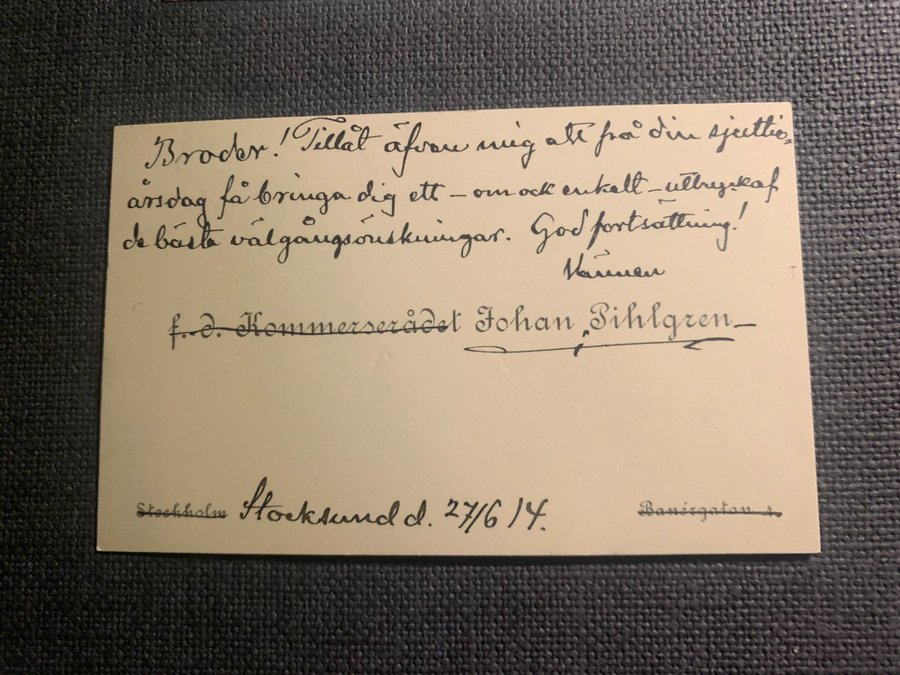 Broder! Tillåt äfven mig att på din sjettio-
årsdag få bringa dig ett – om ock enkelt – uttryck af
de bästa välgångsönskningar. God fortsättning!
Vännen
f. d. Kommerserådet Johan Pihlgren
Stockholm Stocksund d. 27/6 14. Banérgatan 4.